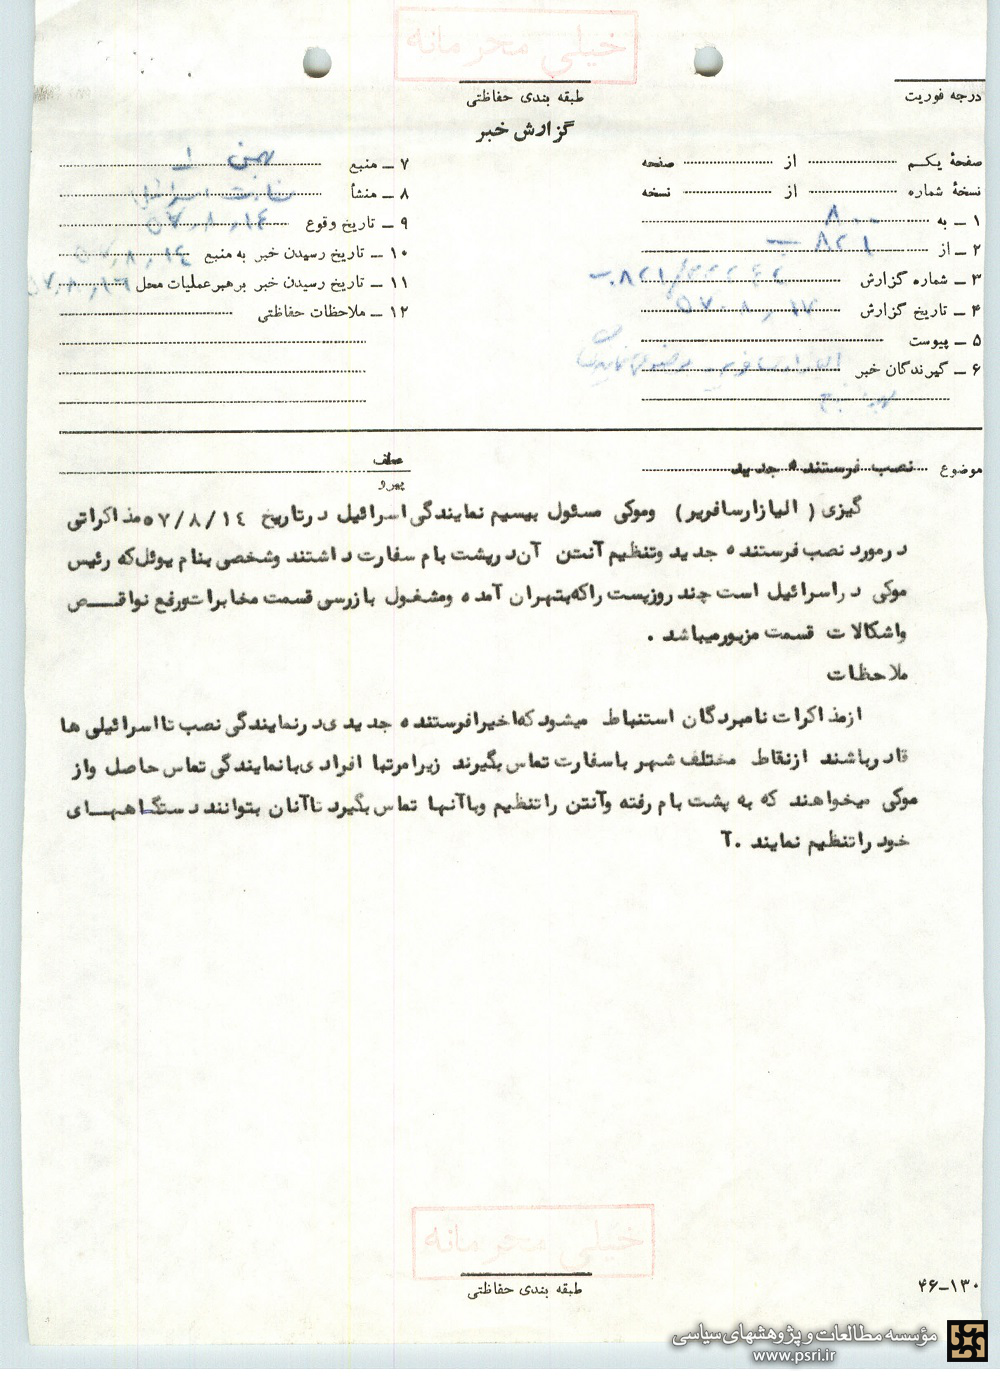 خیلی محرمانه
طبقه بندی حفاظتی
درجه فوریت
گزارش خبر
صفحهٔ یکم از صفحه
نسخهٔ شماره از نسخه
۱ ـ به ۸۰۰
۲ ـ از ۸۲۱
۳ ـ شماره گزارش
۴ ـ تاریخ گزارش ۵۷،۸،۱۷
۵ ـ پیوست
۶ ـ گیرندگان خبر
۷ ـ منبع
۸ ـ منشأ سفارت اسرائیل
۹ ـ تاریخ وقوع ۵۷،۸،۱۴
۱۰ ـ تاریخ رسیدن خبر به منبع ۵۷،۸،۱٤
۱۱ ـ تاریخ رسیدن خبر برهبر عملیات محل ۵۷،۸،۱۶
۱۲ ـ ملاحظات حفاظتی
موضوع نصب فرستنده جدید
عطف
پیرو
گیزی ( الیازارسافریر) وموکی مسئول بیسیم نمایندگی اسرائیل درتاریخ ۵۷/۸/۱٤ مذاکراتی
درمورد نصب فرستنده جدید وتنظیم آنتن آن درپشت بام سفارت داشتند وشخصی بنام یوئل که رئیس
موکی دراسرائیل است چند روزیست راکه بتهران آمده ومشغول بازرسی قسمت مخابرات ورفع نواقص
واشکالات قسمت مزبورمیباشد .
ملاحظات
ازمذاکرات نامبردگان استنباط میشود که اخیرا فرستنده جدیدی درنمایندگی نصب تا اسرائیلی ها
قادرباشند ازنقاط مختلف شهر باسفارت تماس بگیرند زیرا مرتبا افرادی بانمایندگی تماس حاصل واز
موکی میخواهند که به پشت بام رفته وآنتن راتنظیم وباآنها تماس بگیرد تاآنان بتوانند دستگاههای
خود راتنظیم نمایند .آ
خیلی محرمانه
طبقه بندی حفاظتی
۴۶-۱۳۰
مؤسسه مطالعات و پژوهشهای سیاسی
www.psri.ir